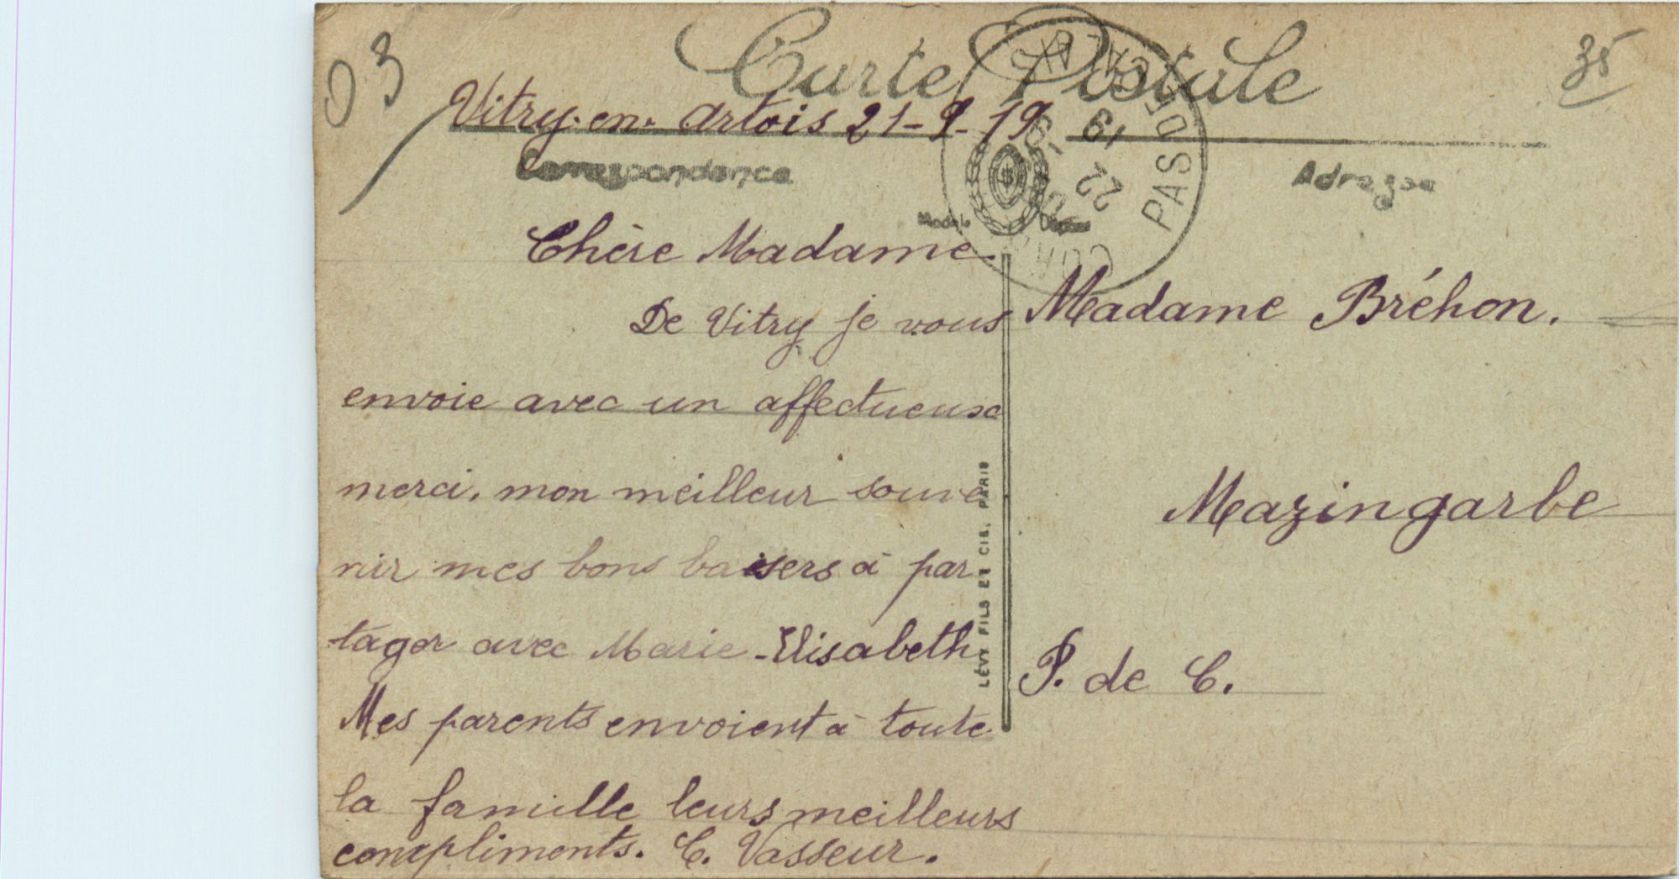 03
35
Carte Postale
Vitry-en-Artois 21-9-19
Correspondance
Adresse
Chère Madame.
De Vitry je vous
envoie avec un affectueux
merci, mon meilleur souve
nir mes bons baisers à par
tager avec Marie-Elisabeth
Mes parents envoient à toute
la famille leurs meilleurs
compliments. C. Vasseur.
LÉVY FILS ET CIE. PARIS
PAS DE CALAIS
22
19
Madame Bréhon.
Mazingarbe
P. de C.